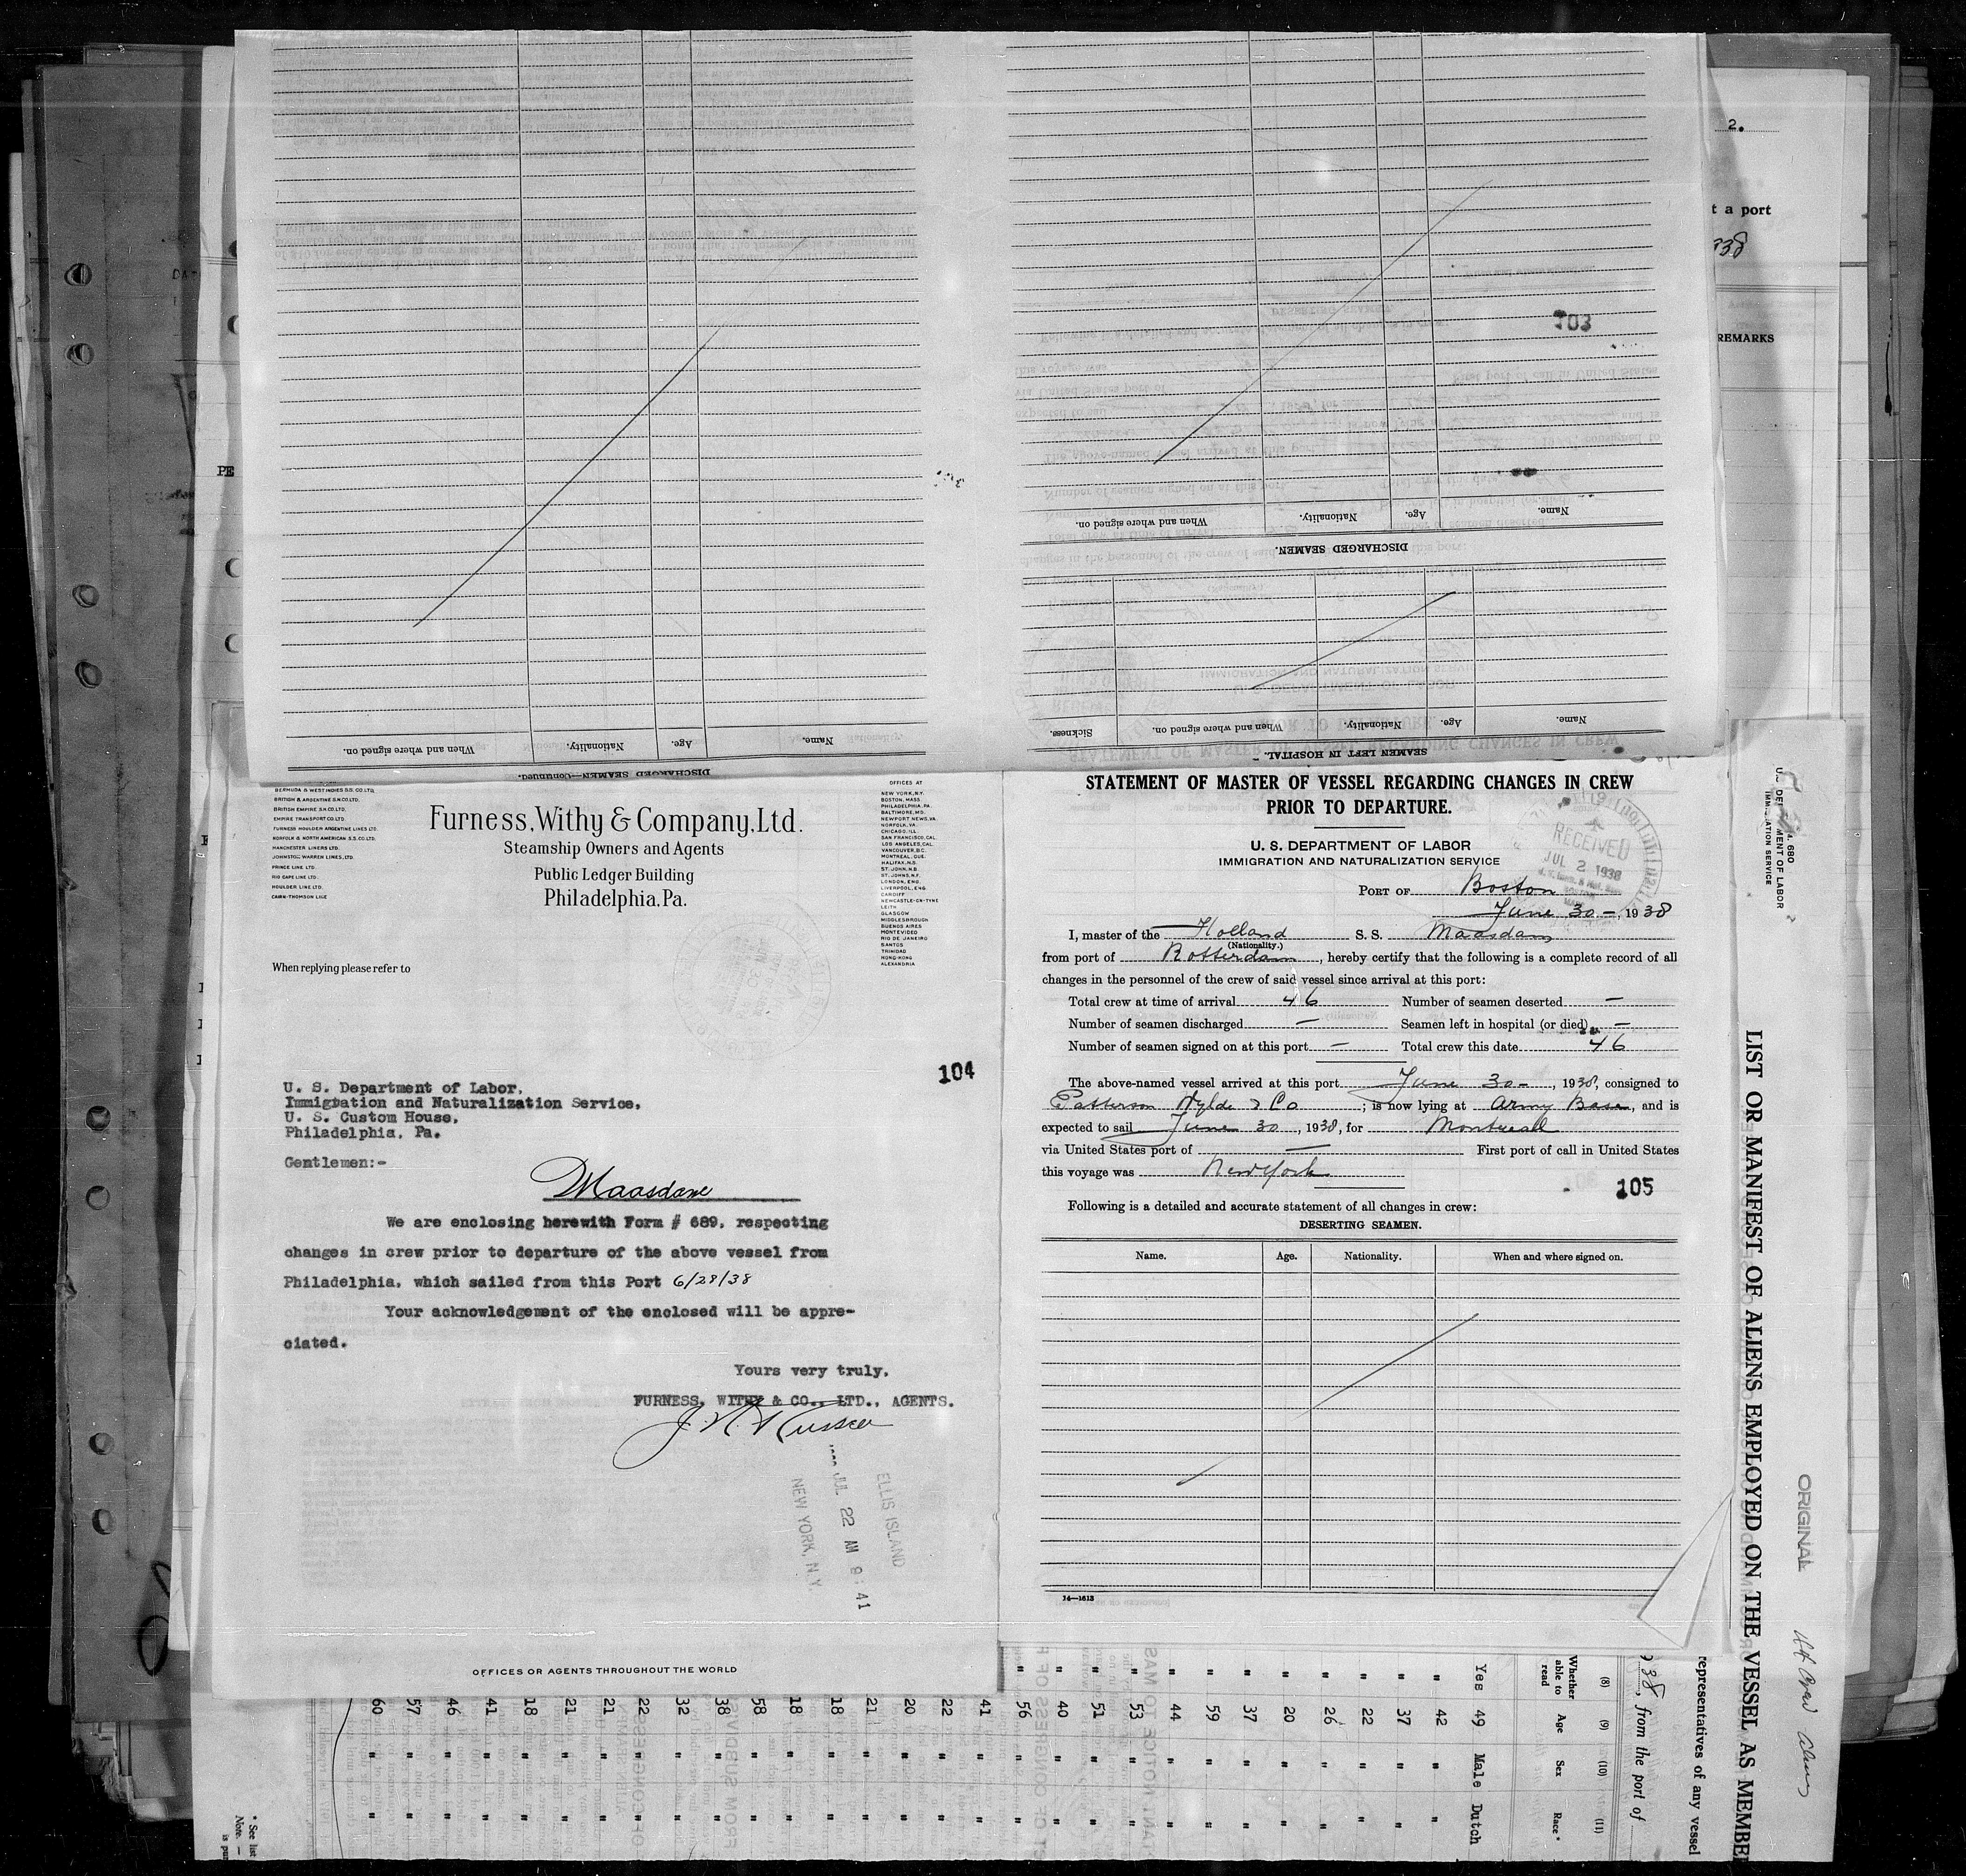 2.
t a port
938
REMARKS
103
Name.
Age.
Nationality.
When and where signed on.
DISCHARGED SEAMEN.
Name.
Age.
Nationality.
When and where signed on.
Sickness.
SEAMEN LEFT IN HOSPITAL.
Name.
Age.
Nationality.
When and where signed on.
DISCHARGED SEAMEN—Continued.
BERMUDA & WEST INDIES S.S. CO. LTD.
BRITISH & ARGENTINE S.N. CO. LTD.
BRITISH EMPIRE S.N. CO. LTD.
EMPIRE TRANSPORT CO. LTD.
FURNESS HOULDER ARGENTINE LINES LTD.
NORFOLK & NORTH AMERICAN S.S. CO. LTD.
MANCHESTER LINERS LTD.
JOHNSTON WARREN LINES, LTD.
PRINCE LINE LTD.
RIO CAPE LINE LTD.
HOULDER LINE LTD.
CAIRN-THOMSON LINE
Furness, Withy & Company, Ltd.
Steamship Owners and Agents
Public Ledger Building
Philadelphia, Pa.
OFFICES AT
NEW YORK, N.Y.
BOSTON, MASS.
PHILADELPHIA, PA.
BALTIMORE, MD.
NEWPORT NEWS, VA.
NORFOLK, VA.
CHICAGO, ILL.
SAN FRANCISCO, CAL.
LOS ANGELES, CAL.
VANCOUVER, B.C.
MONTREAL, QUE.
HALIFAX, N.S.
ST. JOHN, N.B.
ST. JOHNS, N.F.
LONDON, ENG.
LIVERPOOL, ENG.
CARDIFF
NEWCASTLE-ON-TYNE
LEITH
GLASGOW
MIDDLESBROUGH
BUENOS AIRES
MONTEVIDEO
RIO DE JANEIRO
SANTOS
TRINIDAD
HONG-KONG
ALEXANDRIA
When replying please refer to
104
U. S. Department of Labor,
Immigration and Naturalization Service,
U. S. Custom House,
Philadelphia, Pa.
Gentlemen:-
Maasdam
We are enclosing herewith Form # 689, respecting
changes in crew prior to departure of the above vessel from
Philadelphia, which sailed from this Port 6/28/38
Your acknowledgement of the enclosed will be appre-
ciated.
Yours very truly,
FURNESS, WITHY & CO., LTD., AGENTS.
ELLIS ISLAND
JUL 22 AM 9:41
NEW YORK, N.Y.
OFFICES OR AGENTS THROUGHOUT THE WORLD
STATEMENT OF MASTER OF VESSEL REGARDING CHANGES IN CREW
PRIOR TO DEPARTURE.
U. S. DEPARTMENT OF LABOR
IMMIGRATION AND NATURALIZATION SERVICE
RECEIVED
JUL 2 1938
PORT OF Boston
June 30 –, 1938
I, master of the Holland S. S. Maasdam
(Nationality.)
from port of Rotterdam, hereby certify that the following is a complete record of all
changes in the personnel of the crew of said vessel since arrival at this port:
Total crew at time of arrival 46 Number of seamen deserted –
Number of seamen discharged – Seamen left in hospital (or died) –
Number of seamen signed on at this port – Total crew this date 46
The above-named vessel arrived at this port June 30 –, 1938, consigned to
Patterson Wylde & Co ; is now lying at Army Base, and is
expected to sail June 30, 1938, for Montreall
via United States port of – First port of call in United States
this voyage was New York
105
Following is a detailed and accurate statement of all changes in crew:
DESERTING SEAMEN.
Name. Age. Nationality. When and where signed on.
14—1613
LIST OR MANIFEST OF ALIENS EMPLOYED ON THE VESSEL AS MEMBE
ORIGINAL
representatives of any vessel
938, from the port of
(8) (9) (10) (11)
Whether able to read Age Sex Race *
Yes 49 Male Dutch
" 42 " "
" 37 " "
" 22 " "
" 26 " "
" 20 " "
" 37 " "
" 59 " "
" 44 " "
" 53 " "
" 51 " "
" 40 " "
" 56 " "
41 " "
22 " "
20 " "
21 " "
18 " "
18 " "
58 " "
38 " "
32 " "
22 " "
21 " "
21 " "
18 " "
41 " "
46 " "
57 " "
60 " "
* See list
Note. —